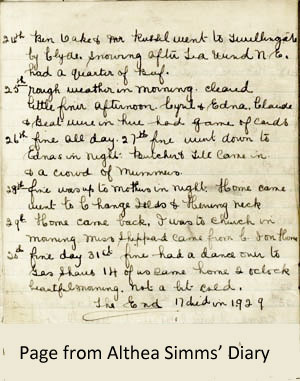 24th Ken Oake & Mr Russel went to Twillingate
by Clyde. snowing after Tea Wind N.E.
had a quarter of Beef.
25th rough weather in morning. cleared
little finer afternoon Cyril & Edna. Claude
& Beat were in here had game of cards
26th fine all day. 27th fine went down to
Ednas in night. came in
& a crowd of Mummers.
28th fine was up to Mothers in night. Home came
went to Change Islds & Herring neck
29th Home came back. I was to Church in
morning. Miss Sheppard came from C on Home
30th fine day 31st fine had a dance over to
14 of us came home 2 oclock
beautiful morning. Not a bit cold.
The End 17 died in 1929
Page from Althea Simms' Diary